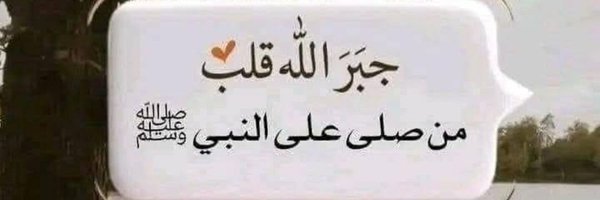 جبَرَ الله قلب
من صلى على النبي ﷺ